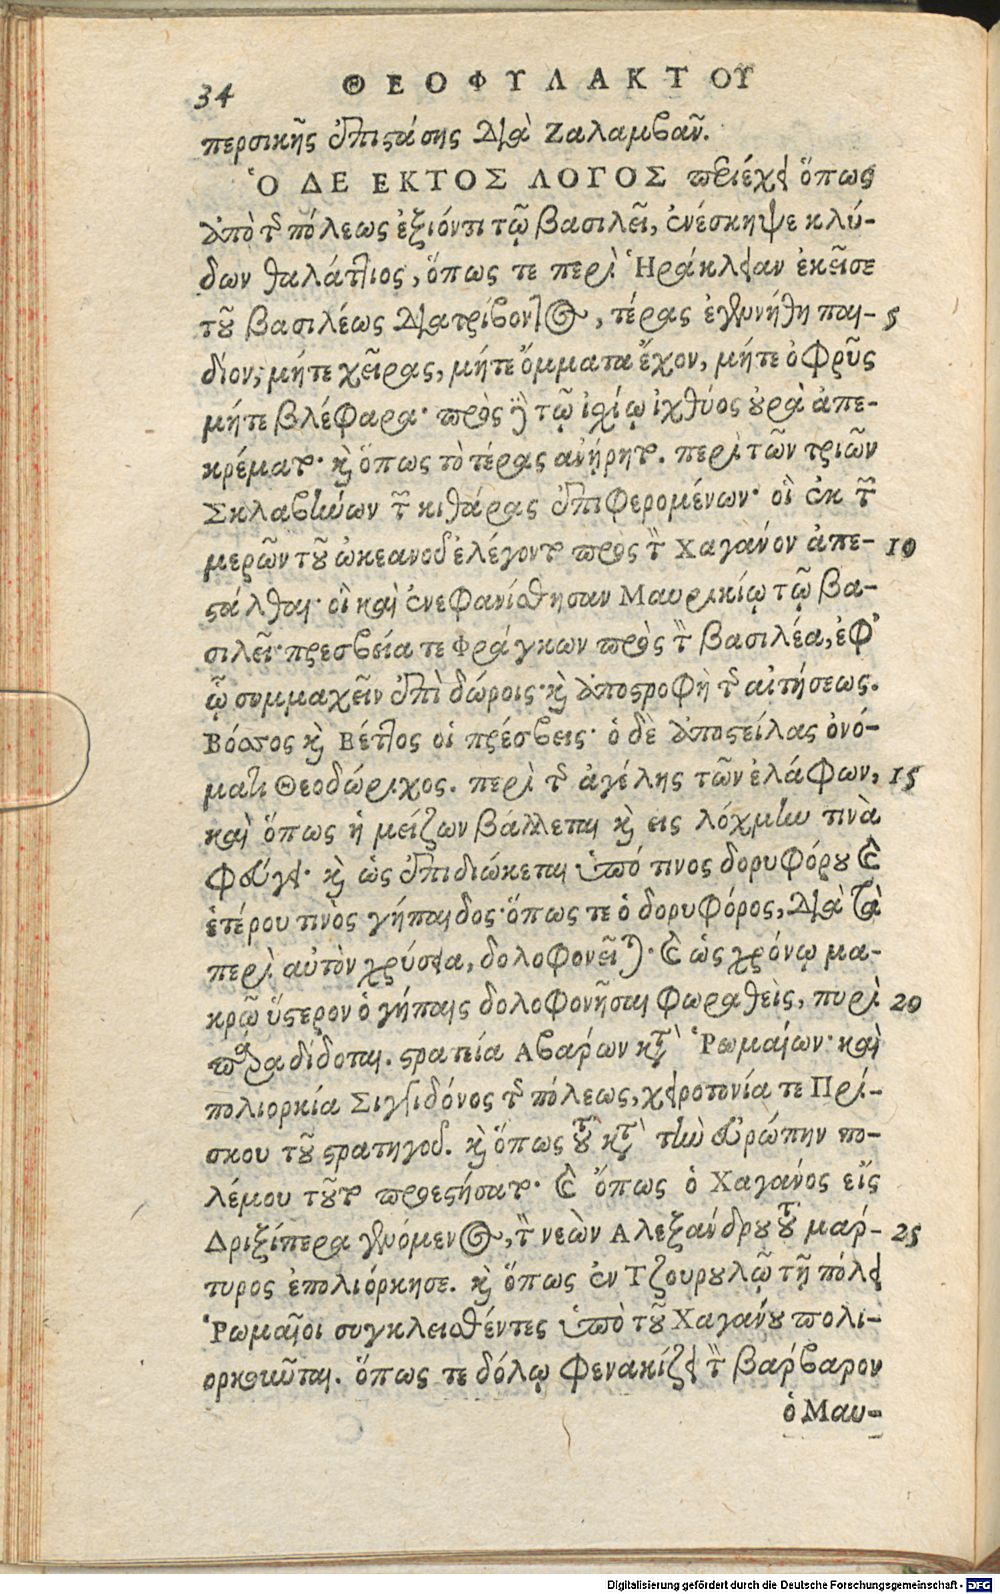 34 ΘΕΟΦΥΛΑΚΤΟΥ
περσικῆς ἐπιστάσης διὰ Ζαλαμβᾶν.
Ὁ ΔΕ ΕΚΤΟΣ ΛΟΓΟΣ περιέχει ὅπως
ἀπὸ τῆς πόλεως ἐξιόντι τῷ βασιλεῖ, ἐνέσκηψε κλύ-
δων θαλάττιος, ὅπως τε περὶ Ἡράκλειαν ἐκεῖσε
τοῦ βασιλέως διατρίβοντος, τέρας ἐγεννήθη παι- 5
δίον, μήτε χεῖρας, μήτε ὄμματα ἔχον, μήτε ὀφρῦς
μήτε βλέφαρα· πρὸς δὲ τῷ ἰσχίῳ ἰχθύος οὐρὰ ἀπε-
κρέματο· καὶ ὅπως τὸ τέρας ἀνῄρητο. περὶ τῶν τριῶν
Σκλαβηνῶν τῶν κιθάρας ἐπιφερομένων· οἳ ἐκ τῶν
μερῶν τοῦ ὠκεανοῦ ἐλέγοντο πρὸς τὸν Χαγάνον ἀπε- 10
στάλθαι· οἳ καὶ ἐνεφανίσθησαν Μαυρικίῳ τῷ βα-
σιλεῖ· πρεσβεία τε Φράγκων πρὸς τὸν βασιλέα, ἐφ'
ᾧ συμμαχεῖν ἐπὶ δώροις· καὶ ἀποστροφὴ τῆς αἰτήσεως.
Βόσος καὶ Βέττος οἱ πρέσβεις· ὁ δὲ ἀποστείλας ὀνό-
ματι Θεοδώριχος. περὶ τῆς ἀγέλης τῶν ἐλάφων, 15
καὶ ὅπως ἡ μείζων βάλλεται καὶ εις λόχμην τινὰ
φεύγει· καὶ ὡς ἐπιδιώκεται ὑπό τινος δορυφόρου καὶ
ἑτέρου τινὸς γήπαιδος· ὅπως τε ὁ δορυφόρος, διὰ τὰ
περὶ αὐτὸν χρύσεια, δολοφονεῖται· καὶ ὡς χρόνῳ μα-
κρῷ ὕστερον ὁ γήπαις δολοφονῆσαι φωραθεὶς, πυρὶ 20
παραδίδοται. στρατεία Αβαρῶν κατὰ Ῥωμαίων· καὶ
πολιορκία Σιγγιδόνος τῆς πόλεως, χειροτονία τε Πρί-
σκου τοῦ στρατηγοῦ. καὶ ὅπως τοῦ κατὰ τὴν εὐρώπην πο-
λέμου τοῦτον προεστήσατο· καὶ ὅπως ὁ Χαγάνος εἰς
Δριξίπερα γενόμενος, τὸν νεὼν Αλεξάνδρου τοῦ μάρ- 25
τυρος ἐπολιόρκησε. καὶ ὅπως ἐν Τζουρουλῷ τῇ πόλει
Ῥωμαῖοι συγκλεισθέντες ὑπὸ τοῦ Χαγάνου πολι-
ορκοῦνται. ὅπως τε δόλῳ φενακίζει τὸν βάρβαρον
ὁ Μαυ-
Digitalisierung gefördert durch die Deutsche Forschungsgemeinschaft - DFG